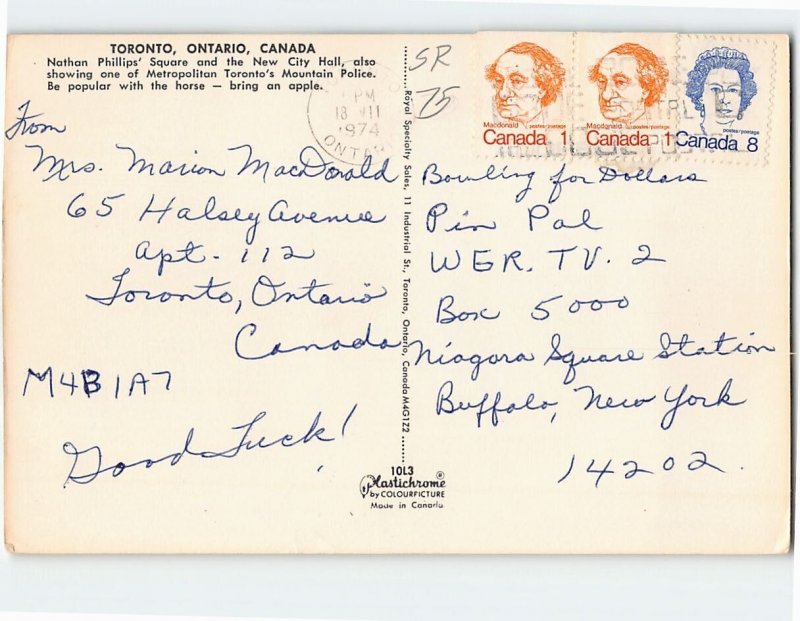 TORONTO, ONTARIO, CANADA
Nathan Phillips' Square and the New City Hall, also
showing one of Metropolitan Toronto's Mountain Police.
Be popular with the horse — bring an apple.
From
Mrs. Marion MacDonald
65 Halsey Avenue
Apt. 112
Toronto, Ontario
Canada
M4B1A7
Good Luck!
PM
18 VII
1974
ONTARIO
SR
75
Royal Specialty Sales, 11 Industrial St., Toronto, Ontario, Canada M4G1Z2
10L3
Plastichrome®
by COLOURPICTURE
Made in Canada
Macdonald postes/postage
Canada 1
Macdonald postes/postage
Canada 1
postes/postage
Canada 8
Bowling for Dollars
Pin Pal
WGR. TV. 2
Box 5000
Niagara Square Station
Buffalo, New York
14202.